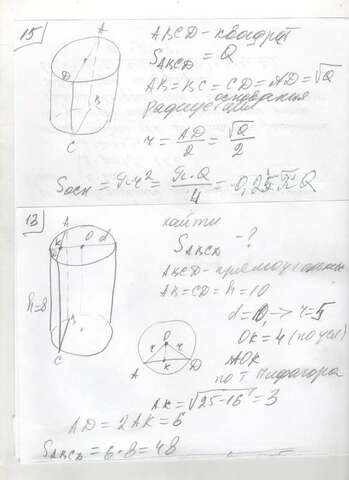 15)
A
D
B
C
ABCD - квадрат
S_ABCD = Q
AB = BC = CD = AD = √Q
радиус основания
r = AD/2 = √Q/2
Sосн = π·r² = π·Q/4 = 0,25πQ
13
A
O
d
K
h=8
B
C
найти
S_ABCD - ?
ABCD - прямоугольник
AB = CD = h = 10
d = 10, → r = 5
OK = 4 (по усл)
ΔAOK
по т Пифагора
O
r
r
A
K
D
AK = √25-16 = 3
AD = 2AK = 6
S_ABCD = 6·8 = 48